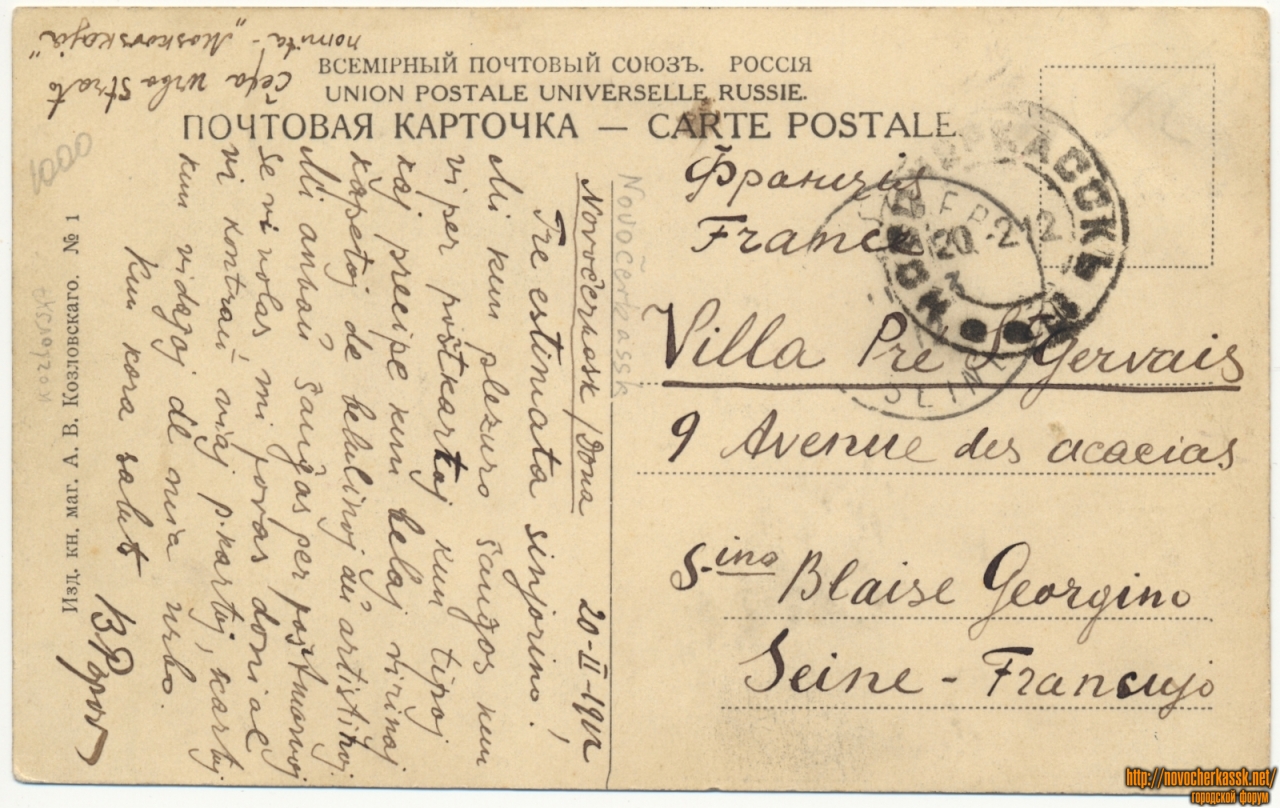 ВСЕМІРНЫЙ ПОЧТОВЫЙ СОЮЗЪ. РОССІЯ
UNION POSTALE UNIVERSELLE RUSSIE.
ПОЧТОВАЯ КАРТОЧКА — CARTE POSTALE.
Čefa urbo strato
nomita - „Moskovskaja"
1000
Изд. кн. маг. А. В. Козловскаго. № 1
Novočerkassk
Novočerkask /Dona 20-II-1912
Tre estimata sinjorino!
Mi kun plezuro ŝanĝos kun
vi per poŝtkartaj kun tipoj
kaj precipe kun belaj virinaj
kapetoj de belulinoj aŭ artistinoj
Mi ankaŭ ŝanĝas per poŝtmarkoj
se vi volas mi povas doni al
vi kontraŭ viaj p.kartoj, kartoj
kun vidajoj de nia urbo.
Kun kora salut
B Popov
Франція
France
НОВОЧЕРКАССКЪ
20 -2 12
Villa Pré St Gervais
9 Avenue des acacias
S-ino Blaise Georgino
Seine - Francujo
http://novocherkassk.net/
городской форум